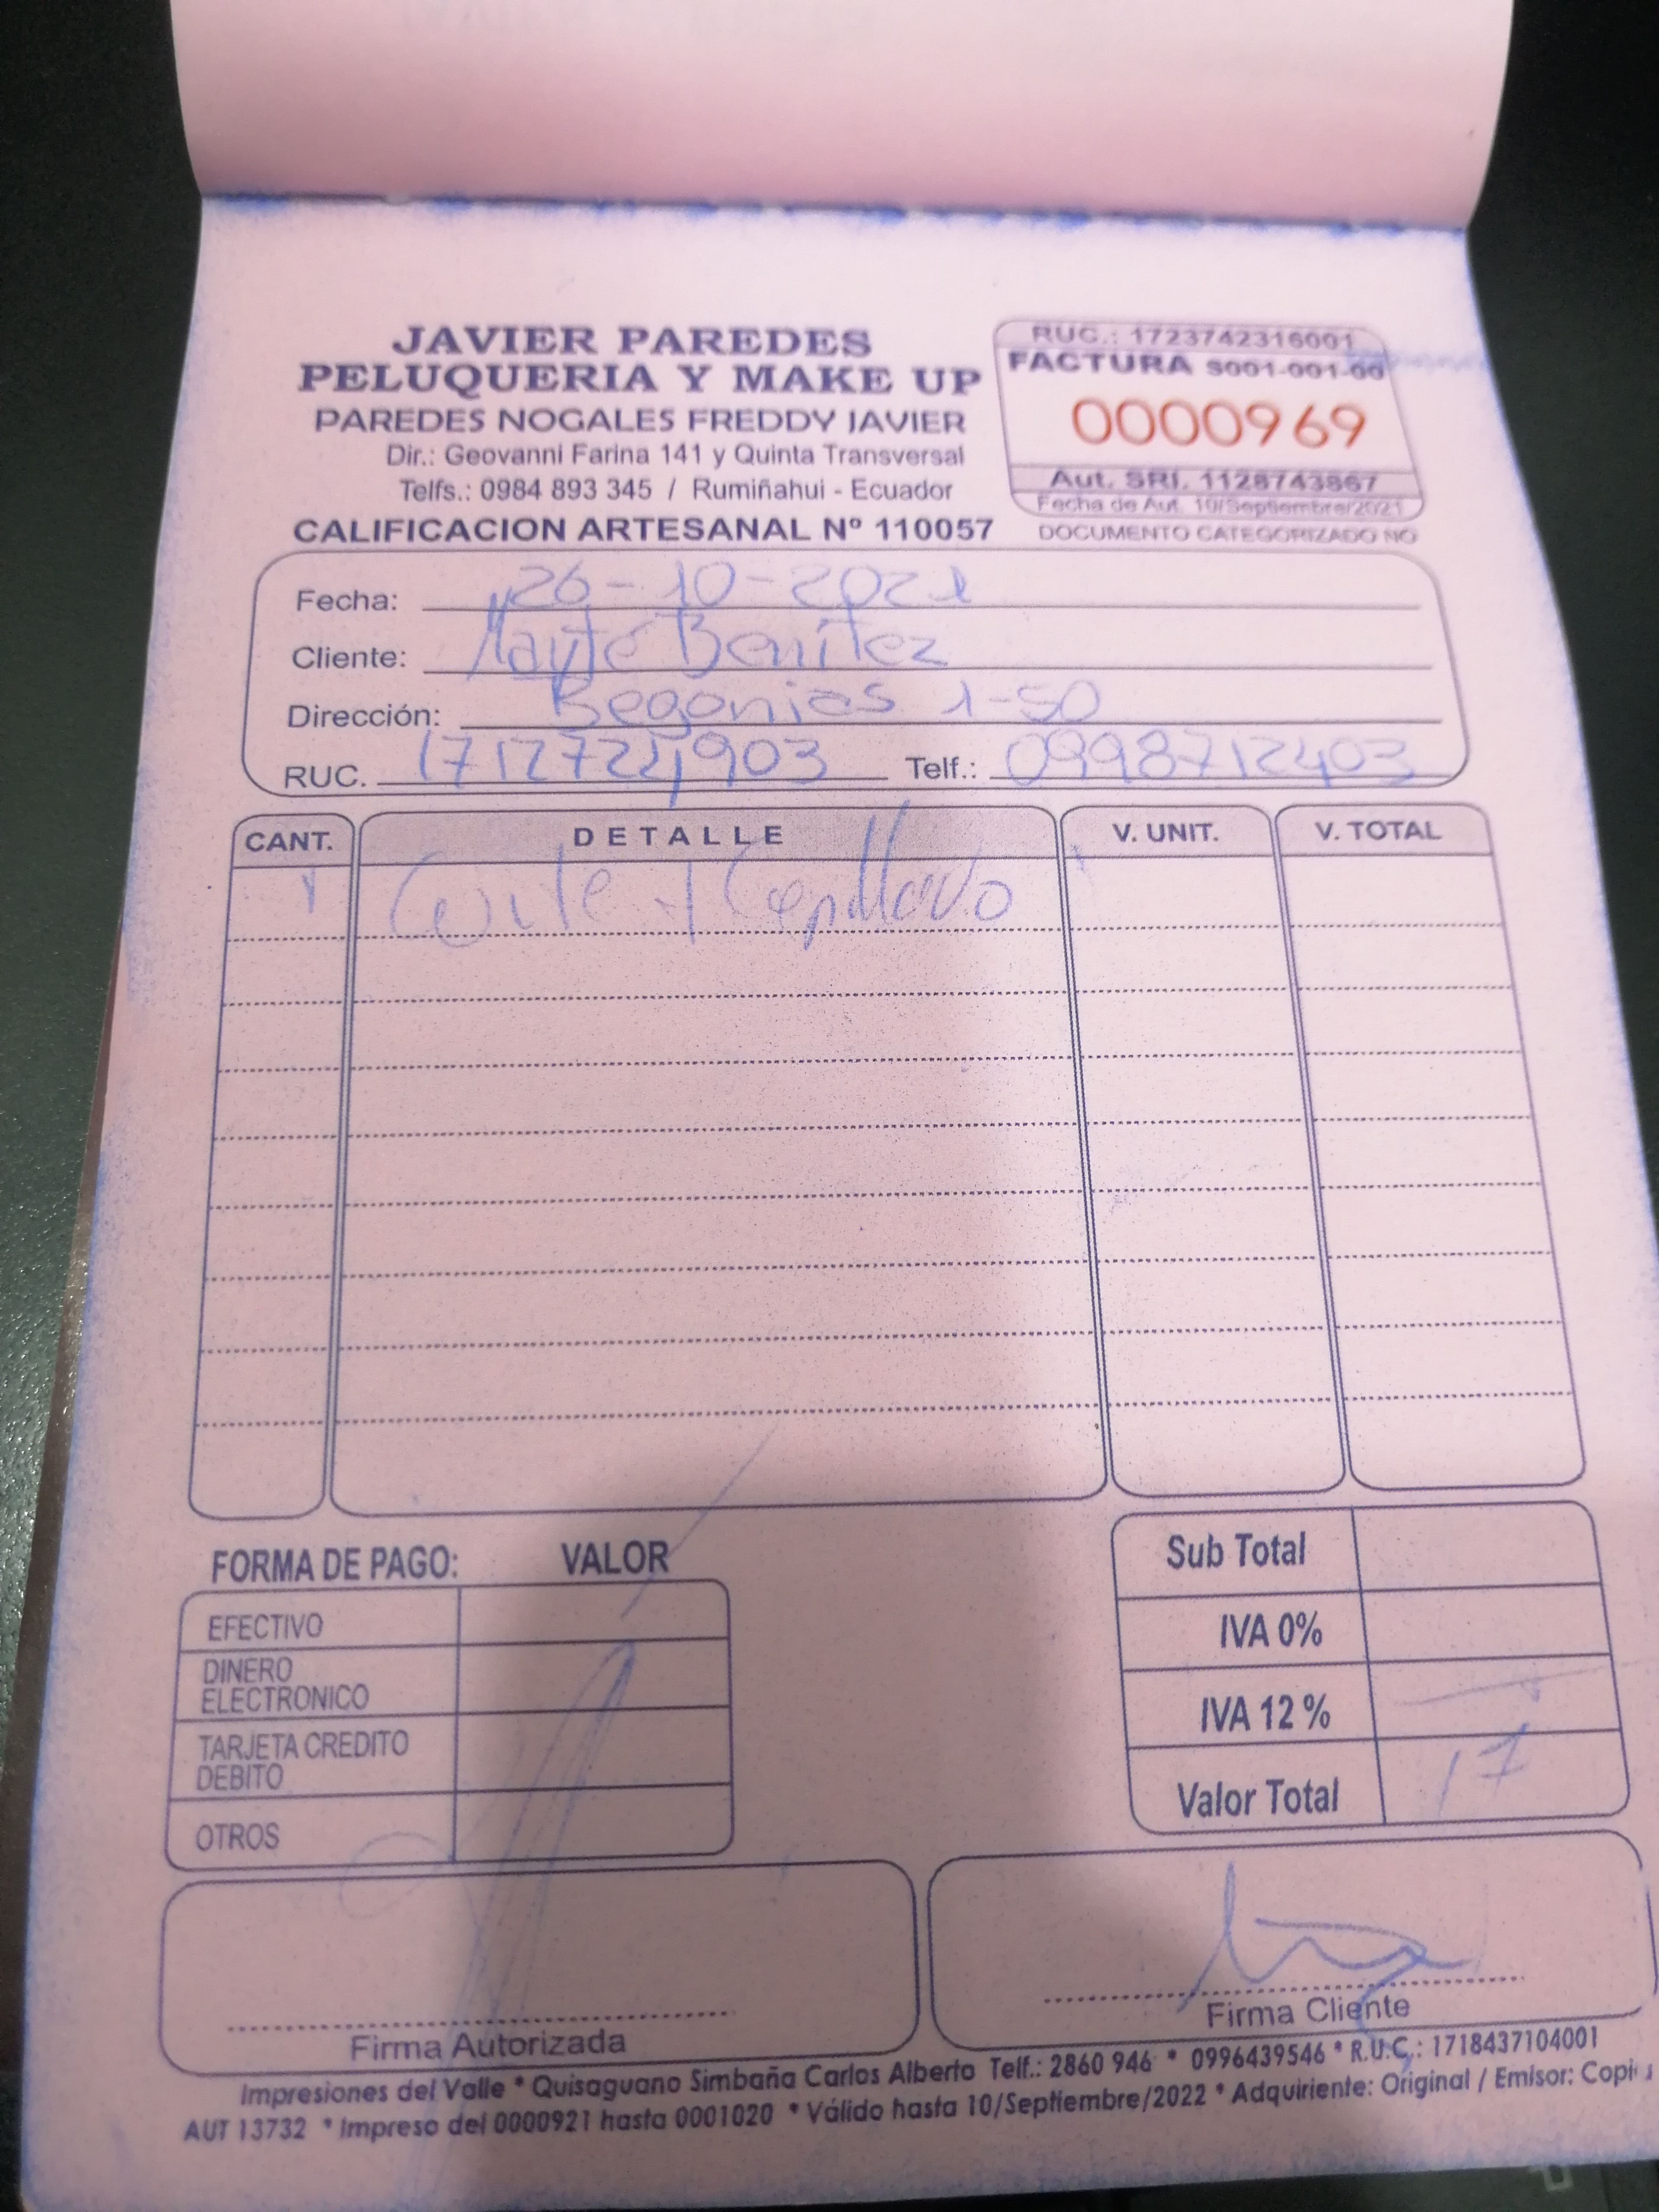 JAVIER PAREDES
PELUQUERIA Y MAKE UP
PAREDES NOGALES FREDDY JAVIER
Dir.: Geovanni Farina 141 y Quinta Transversal
Telfs.: 0984 893 345 / Rumiñahui - Ecuador
CALIFICACION ARTESANAL Nº 110057
RUC.: 1723742316001
FACTURA S001-001-00
0000969
Aut. SRI. 1128743867
Fecha de Aut. 10/Septiembre/2021
DOCUMENTO CATEGORIZADO NO
Fecha: 26-10-2021
Cliente: Mayté Benítez
Dirección: Begonias 1-50
RUC. 1712724903 Telf.: 0998712403
CANT. DETALLE V. UNIT. V. TOTAL
1 Corte + Cepillado
FORMA DE PAGO: VALOR
EFECTIVO
DINERO
ELECTRONICO
TARJETA CREDITO
DEBITO
OTROS
Sub Total
IVA 0%
IVA 12 %
Valor Total 17
Firma Autorizada
Firma Cliente
Impresiones del Valle * Quisaguano Simbaña Carlos Alberto Telf.: 2860 946 * 0996439546 * R.U.C.: 1718437104001
AUT 13732 * Impreso del 0000921 hasta 0001020 * Válido hasta 10/Septiembre/2022 * Adquiriente: Original / Emisor: Copia